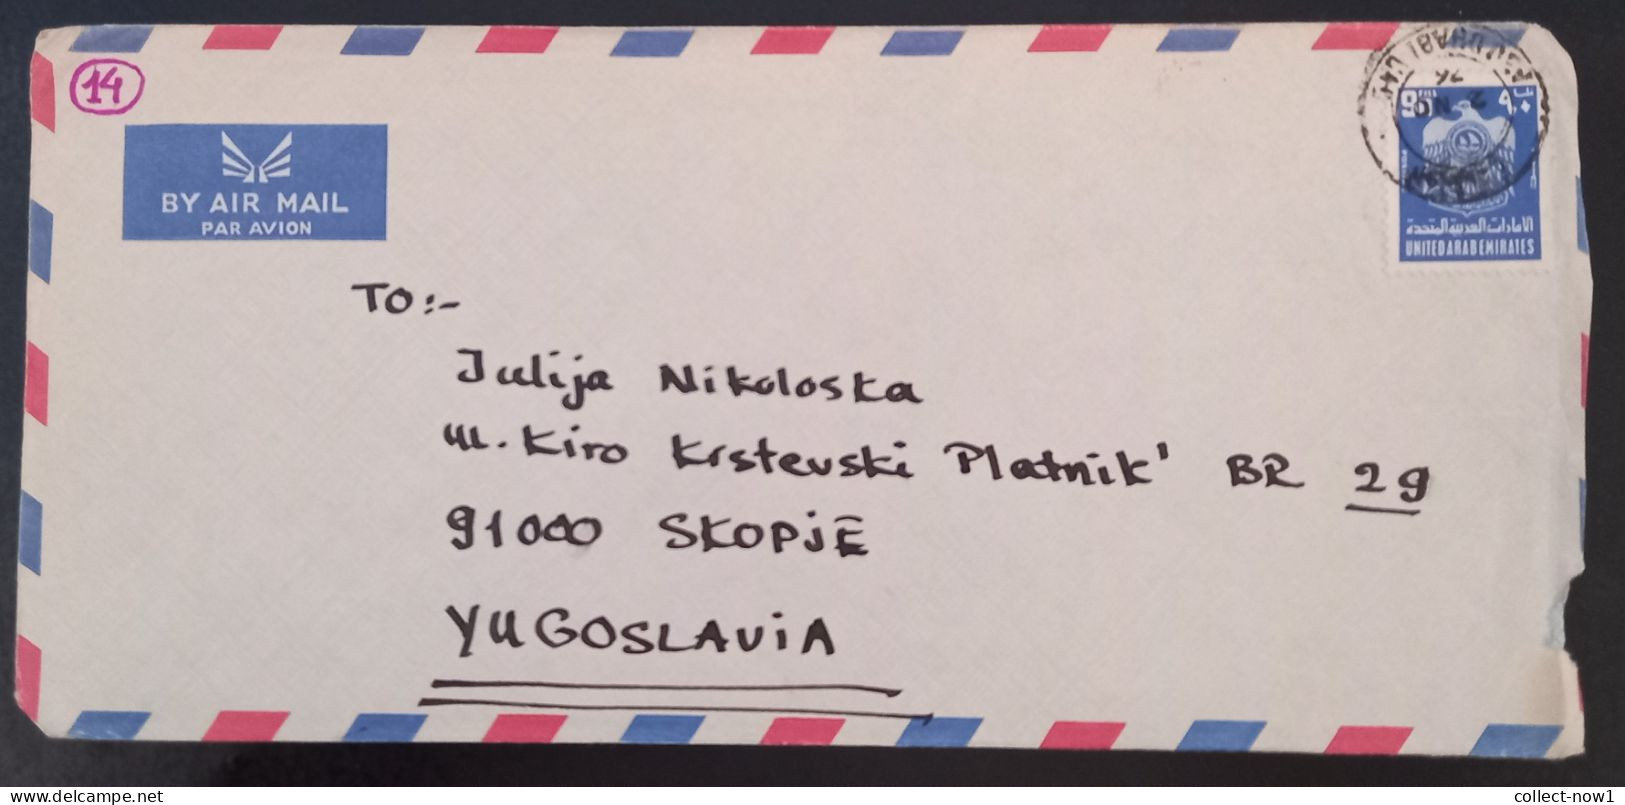 14
BY AIR MAIL
PAR AVION
ABU DHABI
2 NO
76
9 FILS
٩٠
الامارات العربية المتحدة
UNITED ARAB EMIRATES
TO:-
Julija Nikoloska
ul. Kiro Krstevski Platnik' BR 29
91000 SKOPjE
YUGOSLAViA
www.delcampe.net
collect-now1